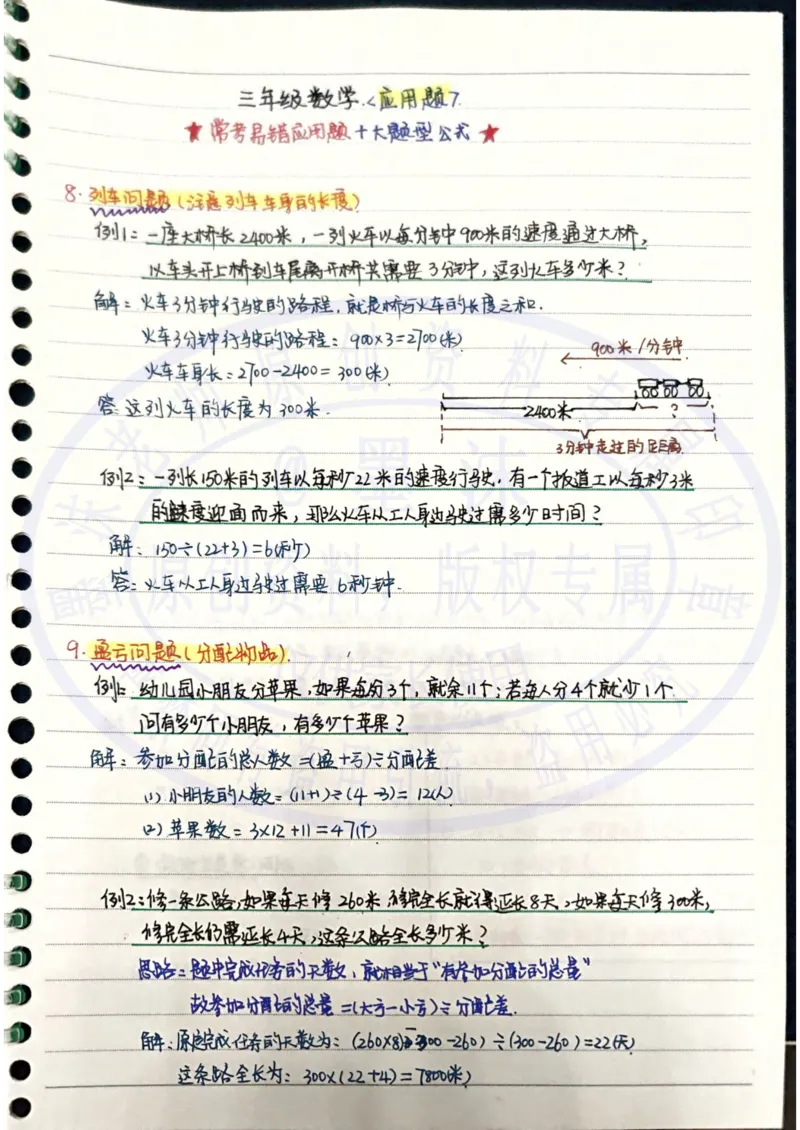 三年级数学.<应用题>.
★ 常考易错应用题十大题型公式 ★
8.列车问题(注意列车车身的长度)
例1:一座大桥长2400米,一列火车以每分钟900米的速度通过大桥,
以车头开上桥到车尾离开桥共需要3分钟,这列火车多少米?
解:火车3分钟行驶的路程,就是桥与火车的长度之和.
火车3分钟行驶的路程:900×3=2700(米)
火车车身长:2700-2400=300(米)
答:这列火车的长度为300米.
900米/分钟
2400米
?
3分钟走过的距离
例2:一列长150米的列车以每秒22米的速度行驶,有一个扳道工以每秒3米
的速度迎面而来,那么火车从工人身边驶过需多少时间?
解:150÷(22+3)=6(秒)
答:火车从工人身边驶过需要6秒钟.
9.盈亏问题(分配物品).
例1:幼儿园小朋友分苹果,如果每分3个,就余11个;若每人分4个就少1个
问有多少个小朋友,有多少个苹果?
解:参加分配的总人数=(盈+亏)÷分配差
(1)小朋友的人数=(11+1)÷(4-3)=12(人)
(2)苹果数=3×12+11=47(个)
例2:修一条公路,如果每天修260米 修完全长就得延长8天,如果每天修300米,
修完全长仍需延长4天,这条公路全长多少米?
思路:题中完成任务的天数,就相当于"有参加分配的总量"
故参加分配的总量=(大亏-小亏)÷分配差.
解:原定完成任务的天数为:(260×8-300-260)÷(300-260)=22(天)
这条路全长为:300×(22+4)=7800(米)
@墨沫
原创资料,版权专属